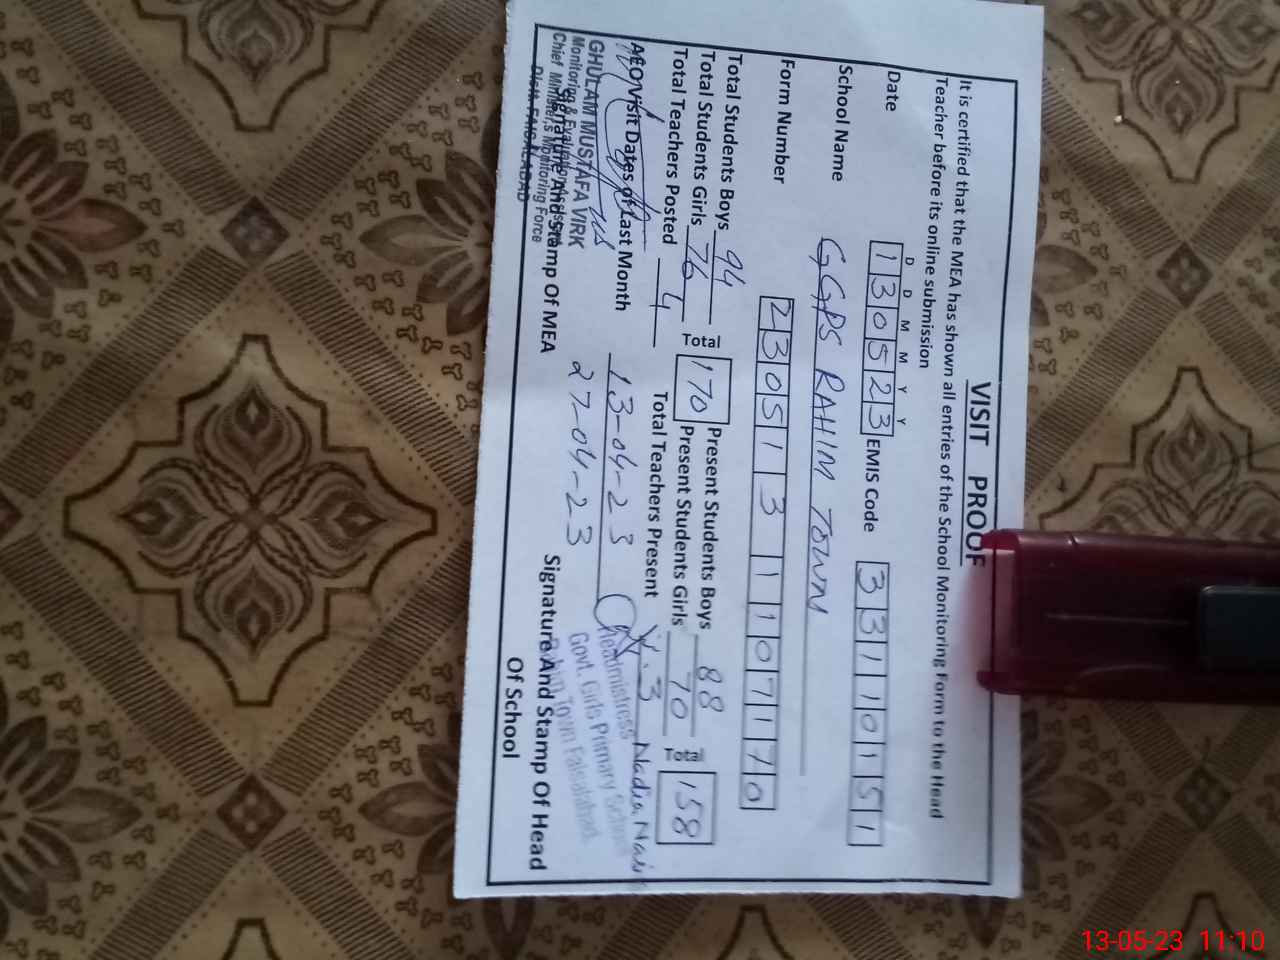 VISIT PROOF
It is certified that the MEA has shown all entries of the School Monitoring Form to the Head
Teacher before its online submission
D D M M Y Y
Date 130523 EMIS Code 33110151
School Name GGPS RAHIM TOWN
Form Number 2305131107170
Total Students Boys 94 Total 170 Present Students Boys 88 Total 158
Total Students Girls 76 Present Students Girls 70
Total Teachers Posted 4 Total Teachers Present 3
AEO Visit Dates of Last Month 13-04-23
27-04-23
GHULAM MUSTAFA VIRK
Monitoring & Evaluation Assistant
Chief Minister,s Monitoring Force
Distt. FAISALABAD
Signature And Stamp Of MEA
Nadia
Headmistress
Govt. Girls Primary School
Rahim Town Faisalabad
Signature And Stamp Of Head
Of School
13-05-23 11:10